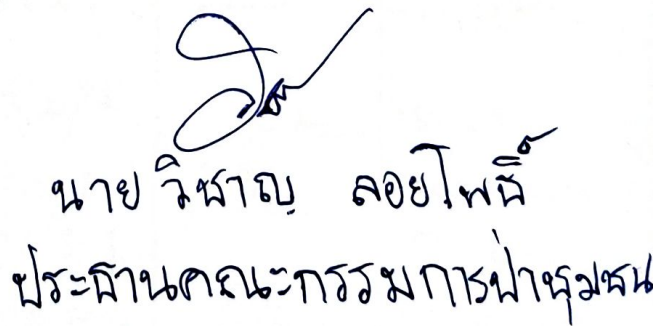 นาย วิชาญ ลอยโพธิ์
ประธานคณะกรรมการป่าชุมชน